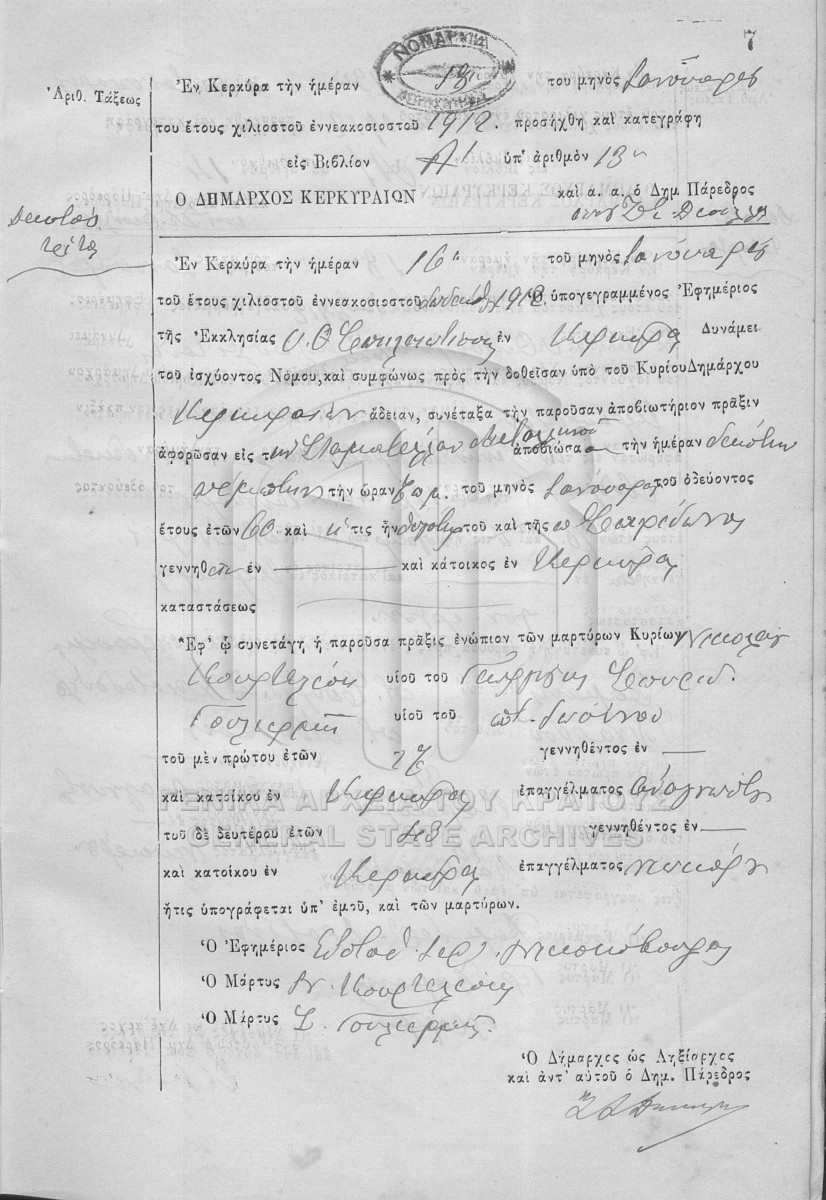 7
ΝΟΜΑΡΧΙΑ
Ἀριθ. Τάξεως
Ἐν Κερκύρᾳ τὴν ἡμέραν 18ῃ τοῦ μηνὸς Ἰανουαρίου
τοῦ ἔτους χιλιοστοῦ ἐννεακοσιοστοῦ 1912. προσήχθη καὶ κατεγράφη
εἰς Βιβλίον Α' ὑπ' ἀριθμὸν 13
Ο ΔΗΜΑΡΧΟΣ ΚΕΡΚΥΡΑΙΩΝ καὶ ἀ. ἀ. ὁ Δημ Πάρεδρος
Δεκάτη
τρίτη
Ἐν Κερκύρᾳ τὴν ἡμέραν 16 τοῦ μηνὸς Ἰανουαρίου
τοῦ ἔτους χιλιοστοῦ ἐννεακοσιοστοῦ 1912 Ὁ ὑπογεγραμμένος Ἐφημέριος
τῆς Ἐκκλησίας Υ. Θ Σπηλαιωτίσσης ἐν Κερκύρᾳ Δυνάμει
τοῦ ἰσχύοντος Νόμου, καὶ συμφώνως πρὸς τὴν δοθεῖσαν ὑπὸ τοῦ Κυρίου Δημάρχου
Κερκυραίων ἄδειαν, συνέταξα τὴν παροῦσαν ἀποβιωτήριον πρᾶξιν
ἀφορῶσαν εἰς τὴν Σταματέλλαν ἀποβιώσασαν τὴν ἡμέραν δεκάτην
πέμπτην τὴν ὥραν τοῦ μηνὸς Ἰανουαρίου τοῦ ὁδεύοντος
ἔτους ἐτῶν 60 καὶ ἥτις ἦν θυγάτηρ τοῦ καὶ τῆς π Σπυρίδωνος
γεννηθ ἐν καὶ κάτοικος ἐν Κερκύρᾳ
καταστάσεως
Ἐφ' ᾧ συνετάγη ἡ παροῦσα πρᾶξις ἐνώπιον τῶν μαρτύρων Κυρίων Νικολάου
Κουρτελέση υἱοῦ τοῦ Γεωργίου Σπυρίδ.
Γουλιέρμη υἱοῦ τοῦ ποτ. Ἰωάννου
τοῦ μὲν πρώτου ἐτῶν 27 γεννηθέντος ἐν
καὶ κατοίκου ἐν Κερκύρᾳ ἐπαγγέλματος ἀναγνώστη
τοῦ δὲ δευτέρου ἐτῶν 43 γεννηθέντος ἐν
καὶ κατοίκου ἐν Κερκύρᾳ ἐπαγγέλματος
ἥτις ὑπογράφεται ὑπ' ἐμοῦ, καὶ τῶν μαρτύρων.
Ὁ Ἐφημέριος Εὐστάθ. ἱερ.
Ὁ Μάρτυς Ν. Κουρτελέσης
Ὁ Μάρτυς Σ. Γουλιέρμης
Ὁ Δήμαρχος ὡς Ληξίαρχος
καὶ ἀντ' αὐτοῦ ὁ Δημ. Πάρεδρος
ΓΕΝΙΚΑ ΑΡΧΕΙΑ ΤΟΥ ΚΡΑΤΟΥΣ
GENERAL STATE ARCHIVES